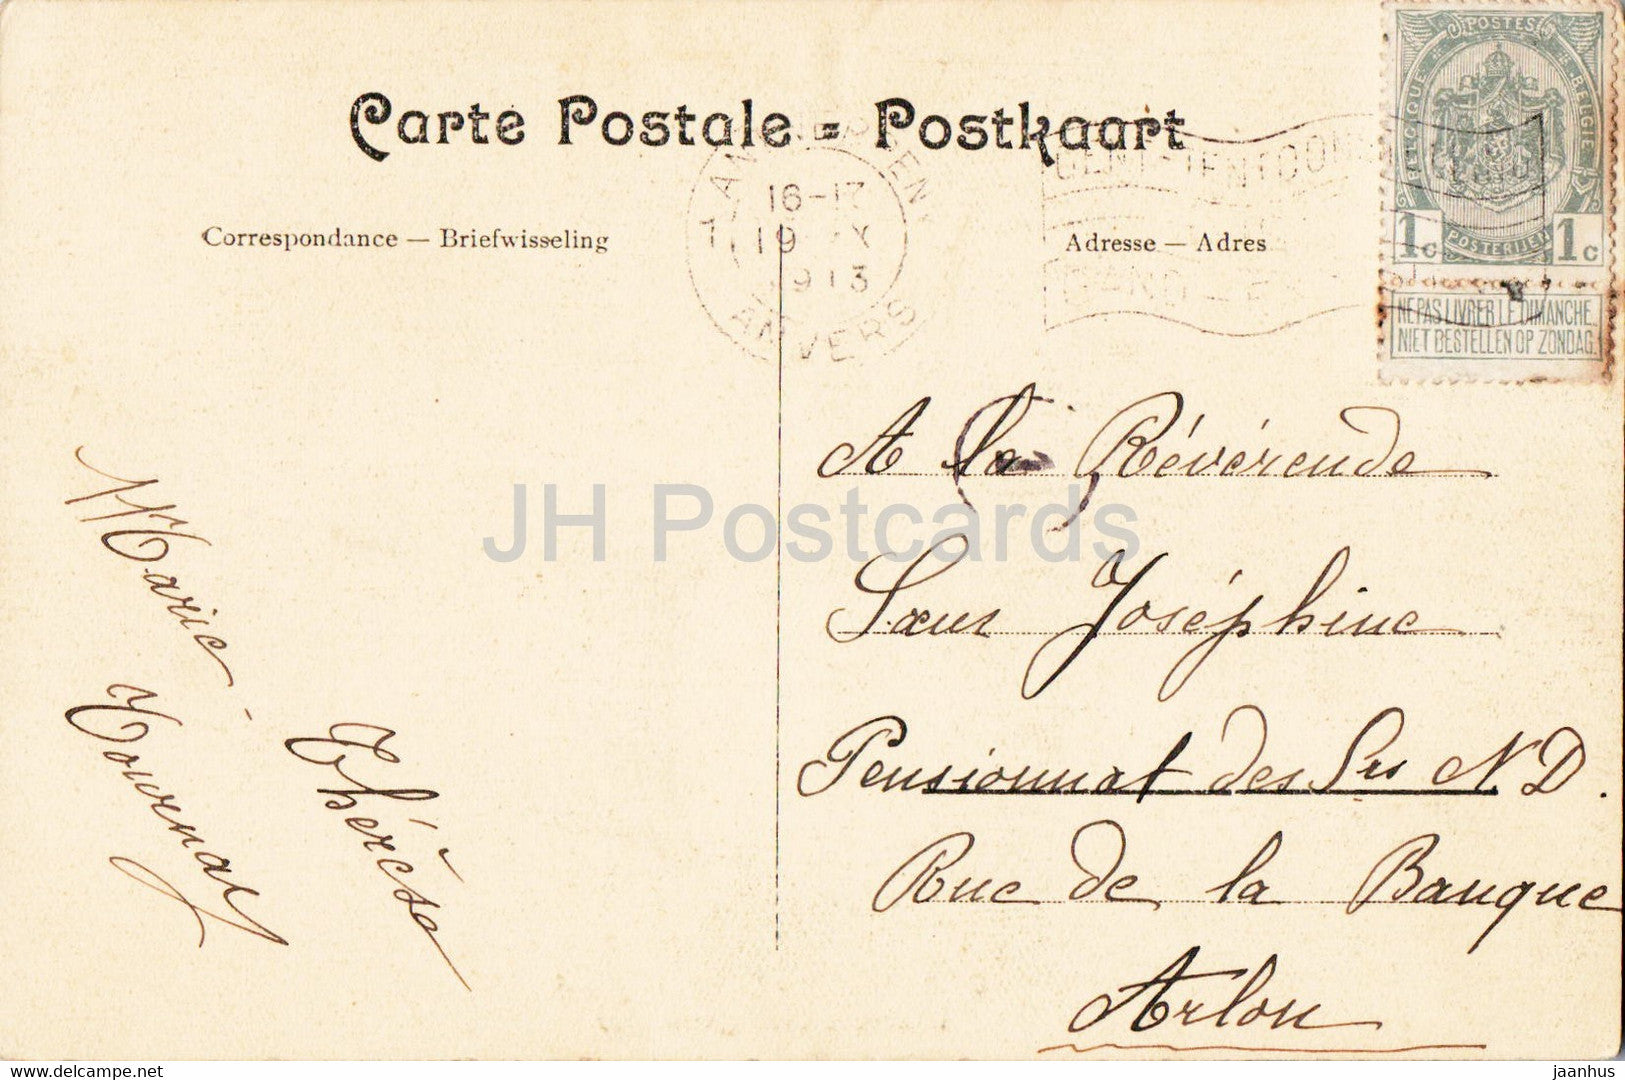 Carte Postale = Postkaart
Correspondance — Briefwisseling
Adresse — Adres
ANTWERPEN
16-17
19 X
1913
ANVERS
GENT-TENTOON
GAND-E
POSTES
BELGIQUE
BELGIË
1c POSTERIJEN 1c
NE PAS LIVRER LE DIMANCHE
NIET BESTELLEN OP ZONDAG
A la Révérende
Sœur Joséphine
Pensionnat des Srs N. D.
Rue de la Banque
Arlon
Marie-Thérèse
Tournay
JH Postcards
delcampe.net
jaanhus